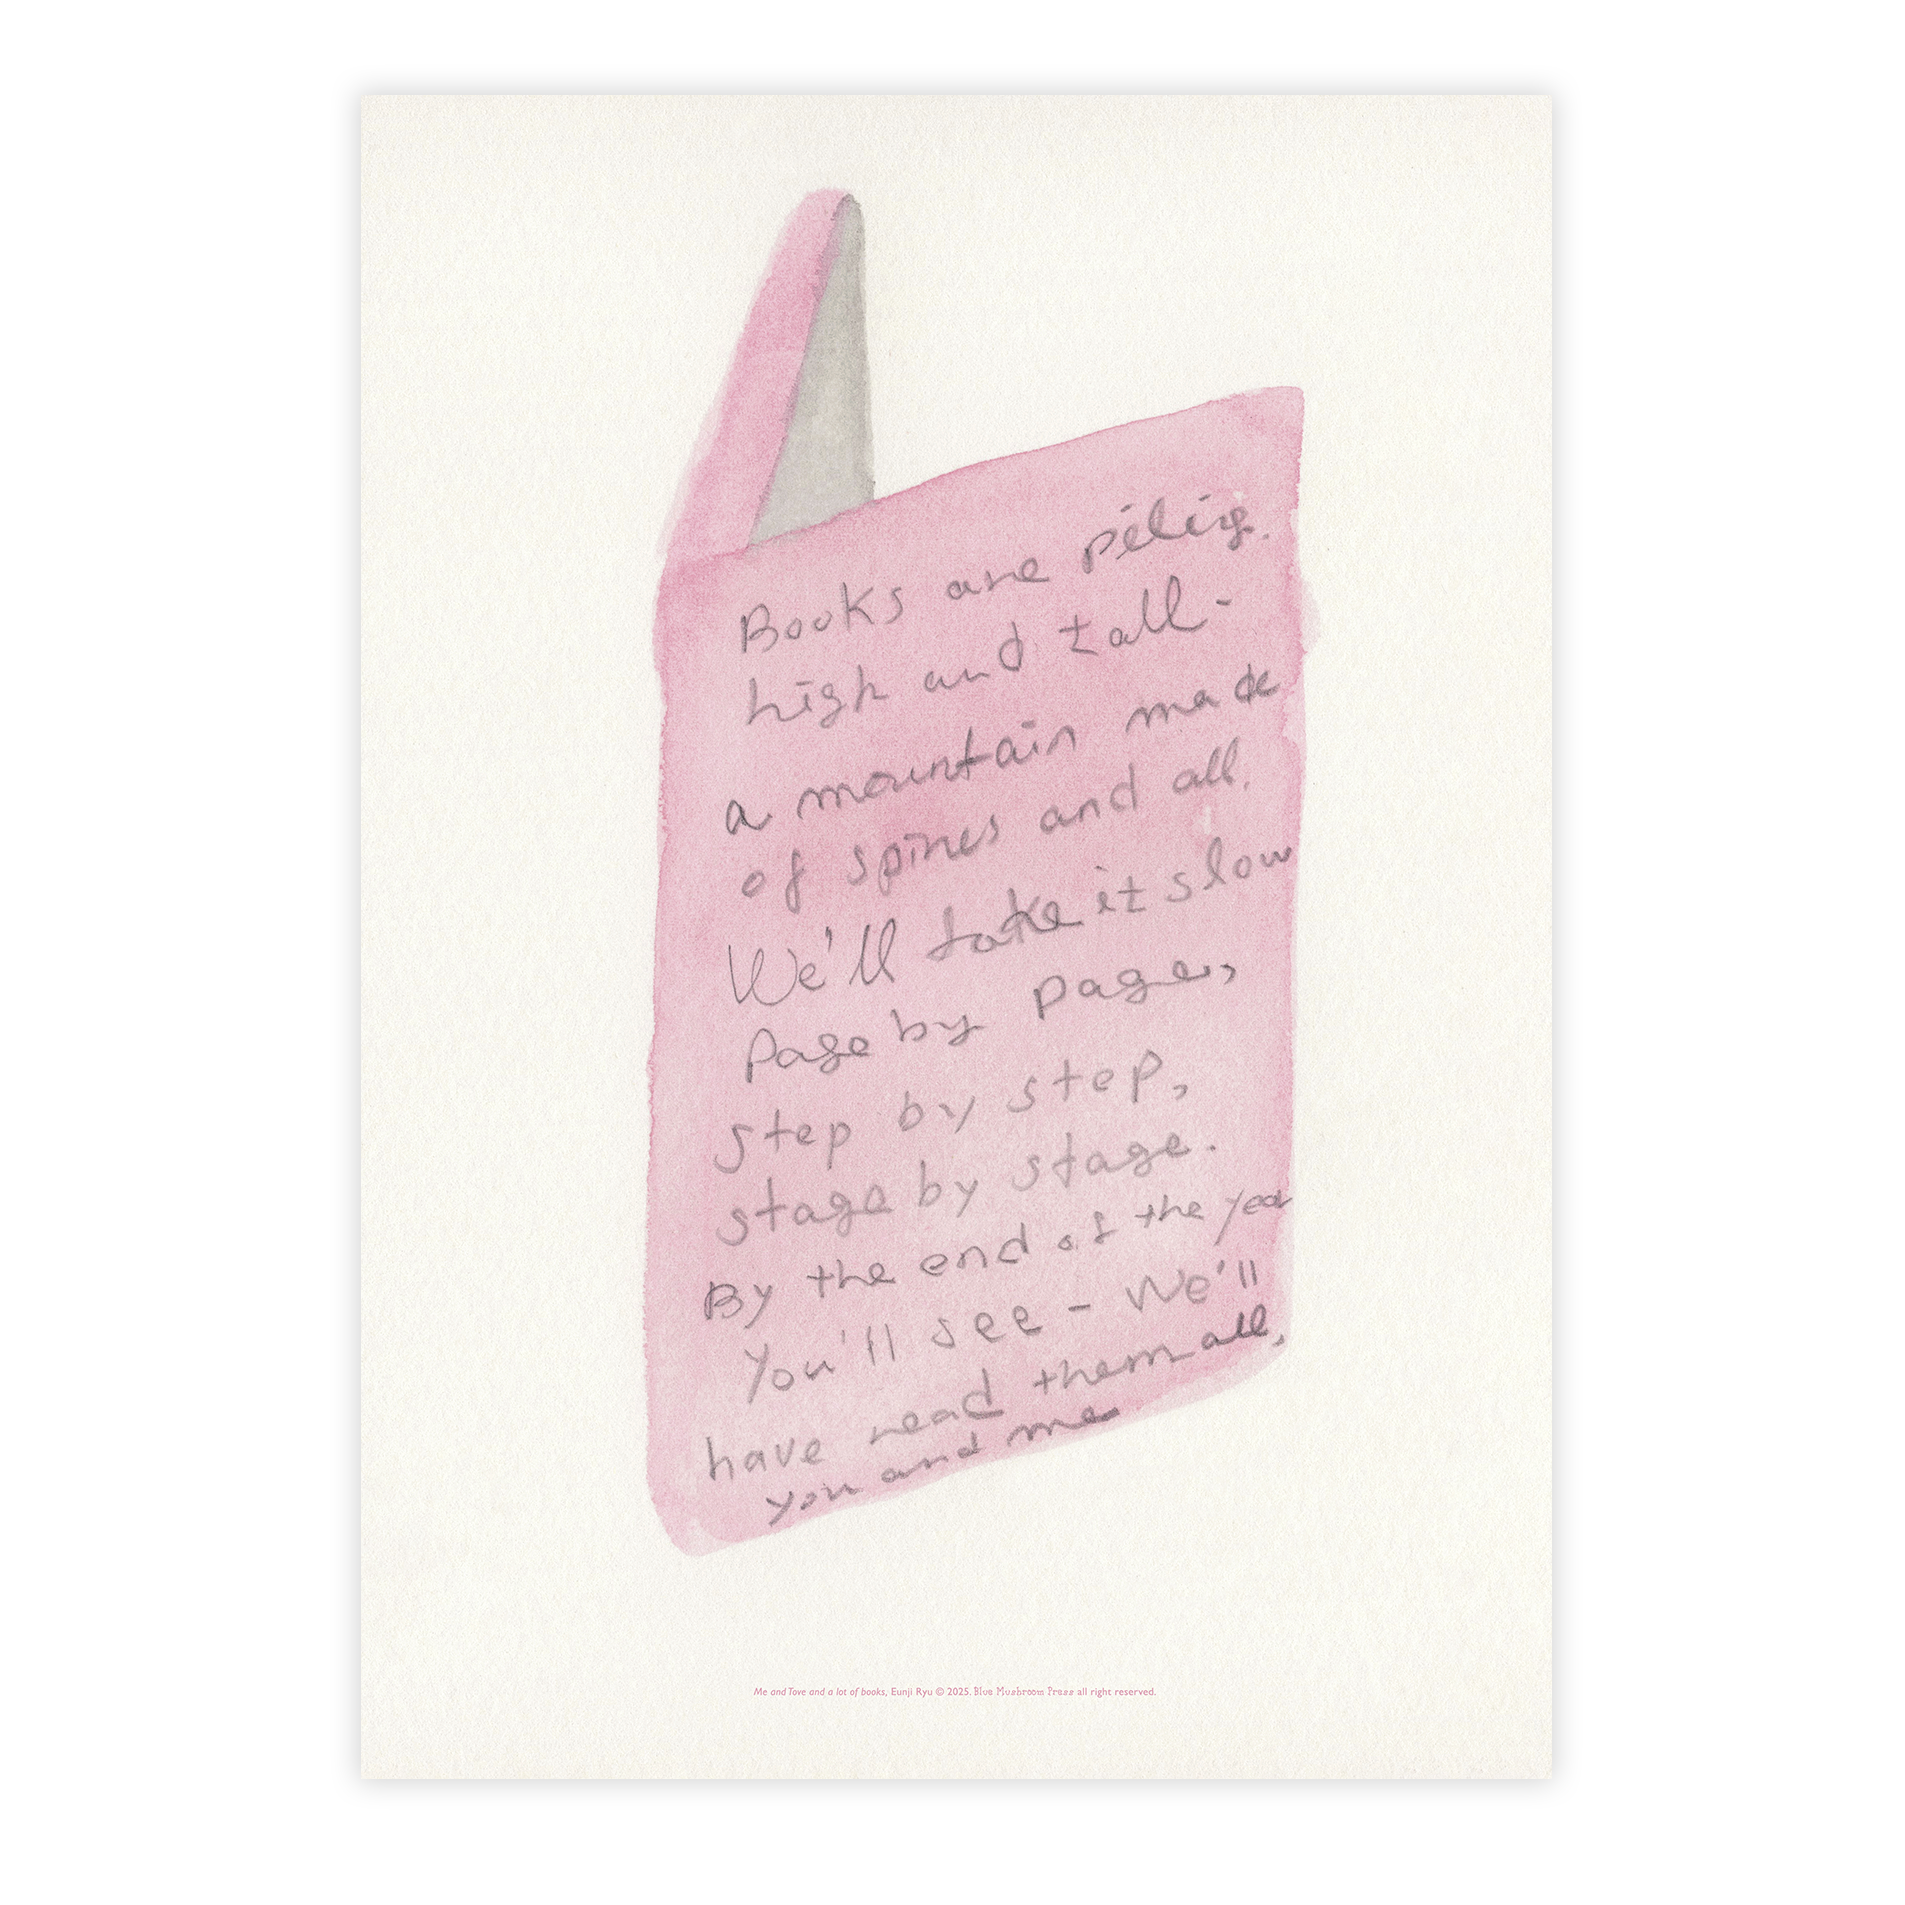 Books are pilig.
high and tall -
a mountain made
of spines and all.
We'll take it slow
Page by page,
step by step,
stage by stage.
By the end of the year
You'll see - We'll
have read them all,
you and me
Me and Tove and a lot of books, Eunji Ryu © 2025. Blue Mushroom Press all right reserved.